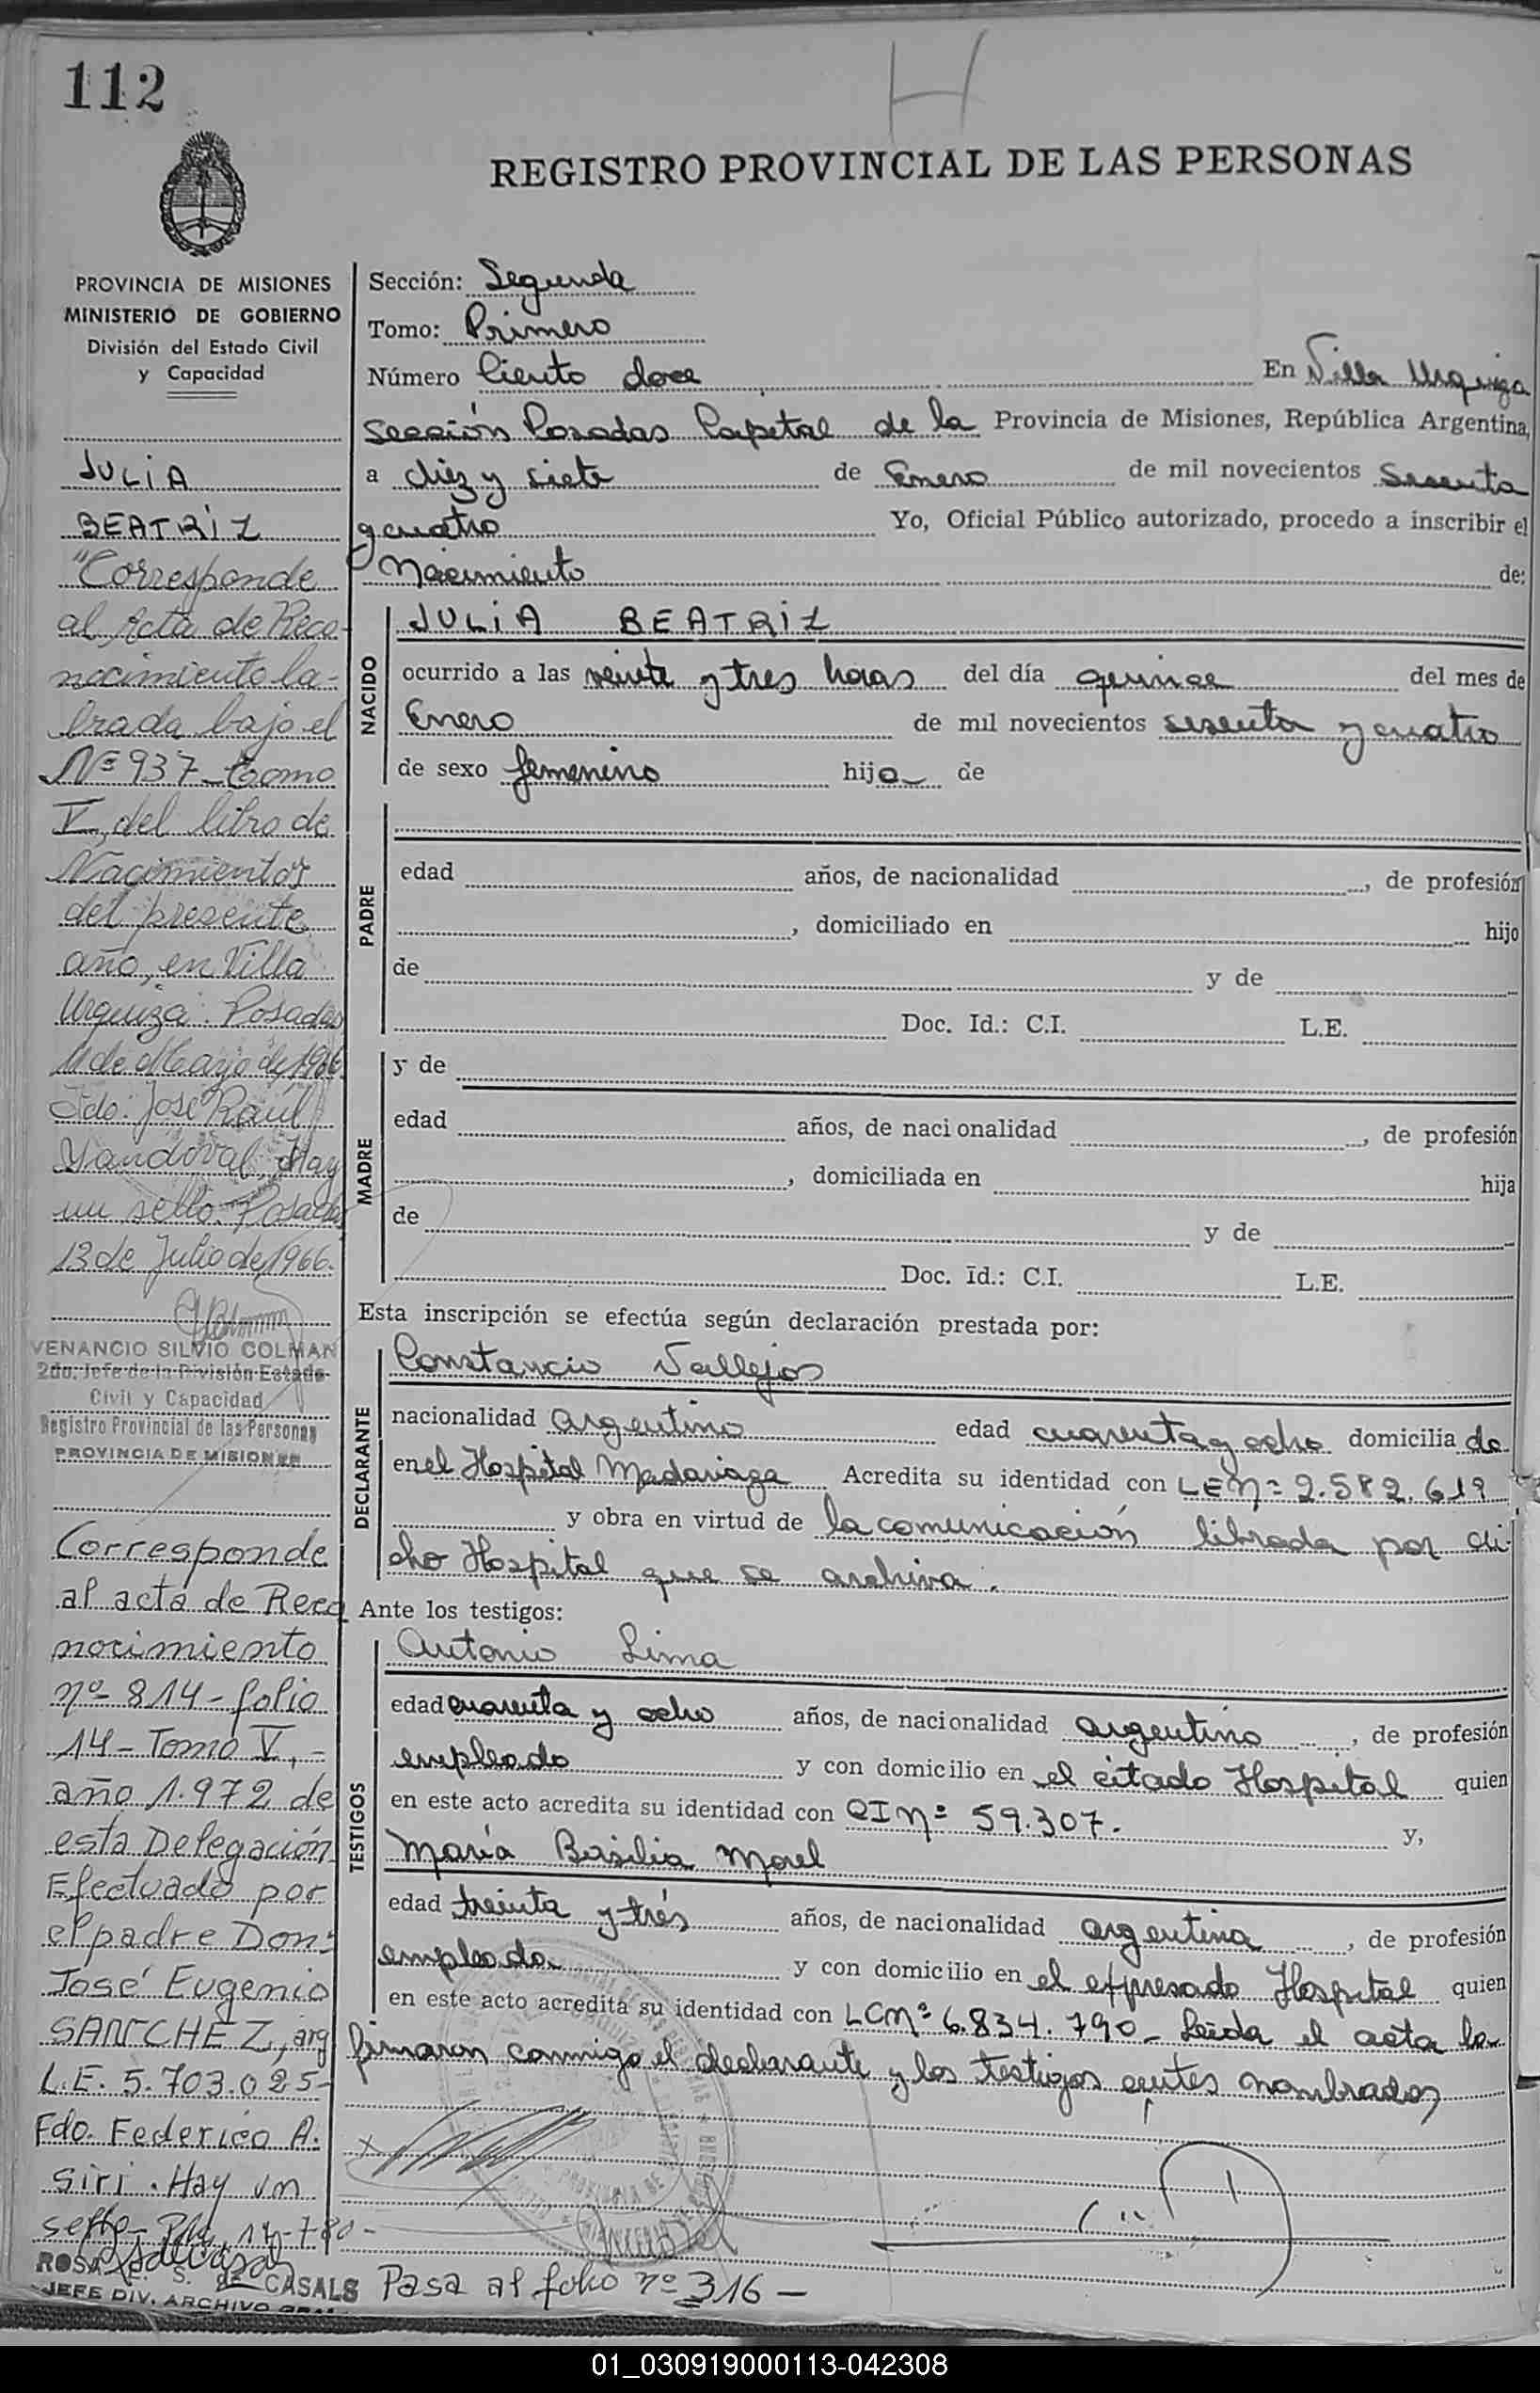 112
H
REGISTRO PROVINCIAL DE LAS PERSONAS
PROVINCIA DE MISIONES
MINISTERIO DE GOBIERNO
División del Estado Civil
y Capacidad
JULIA
BEATRIZ
"Corresponde
al Acta de Reco-
nocimiento la-
brada bajo el
Nº 937 - Tomo
V, del libro de
Nacimientos
del presente
año, en Villa
Urquiza. Posadas
11 de Mayo de 1966
Fdo: José Raúl
Sandoval, Hay
un sello. Posadas,
13 de Julio de 1966.
VENANCIO SILVIO COLMAN
2do. Jefe de la División Estado
Civil y Capacidad
Registro Provincial de las Personas
PROVINCIA DE MISIONES
Corresponde
al acta de Reco
nocimiento
nº 814 - folio
14 - Tomo V, -
año 1.972 de
esta Delegación
Efectuado por
el padre Don:
José Eugenio
SANCHEZ, arg
L.E. 5.703.025-
Fdo. Federico A.
Siri. Hay un
sello
ROSA S. DE CASALS
JEFE DIV. ARCHIVO GRAL
Sección: Segunda
Tomo: Primero
Número Ciento doce En Villa Urquiza
Sección Posadas Capital de la Provincia de Misiones, República Argentina,
a diez y siete de Enero de mil novecientos sesenta
y cuatro Yo, Oficial Público autorizado, procedo a inscribir el
Nacimiento de:
NACIDO
JULIA BEATRIZ
ocurrido a las veinte y tres horas del día quince del mes de
Enero de mil novecientos sesenta y cuatro
de sexo femenino hija de
PADRE
edad años, de nacionalidad , de profesión
, domiciliado en hijo
de y de
Doc. Id.: C.I. L.E.
MADRE
y de
edad años, de nacionalidad , de profesión
, domiciliada en hija
de y de
Doc. Id.: C.I. L.E.
Esta inscripción se efectúa según declaración prestada por:
DECLARANTE
Constancio Vallejos
nacionalidad argentino edad cuarenta y ocho domicilia do
en el Hospital Madariaga Acredita su identidad con LE nº 2.582.619
y obra en virtud de la comunicación librada por di-
cho Hospital que se archiva.
Ante los testigos:
TESTIGOS
Antonio Lima
edad cuarenta y ocho años, de nacionalidad argentino, de profesión
empleado y con domicilio en el citado Hospital quien
en este acto acredita su identidad con CI nº 59.307. y,
María Basilia Morel
edad treinta y trés años, de nacionalidad argentina, de profesión
empleada y con domicilio en el expresado Hospital quien
en este acto acredita su identidad con LC nº 6.834.790 - Leida el acta la
firmaron conmigo el declarante y los testigos nombrados
Pasa al folio nº 316 -
01_030919000113-042308